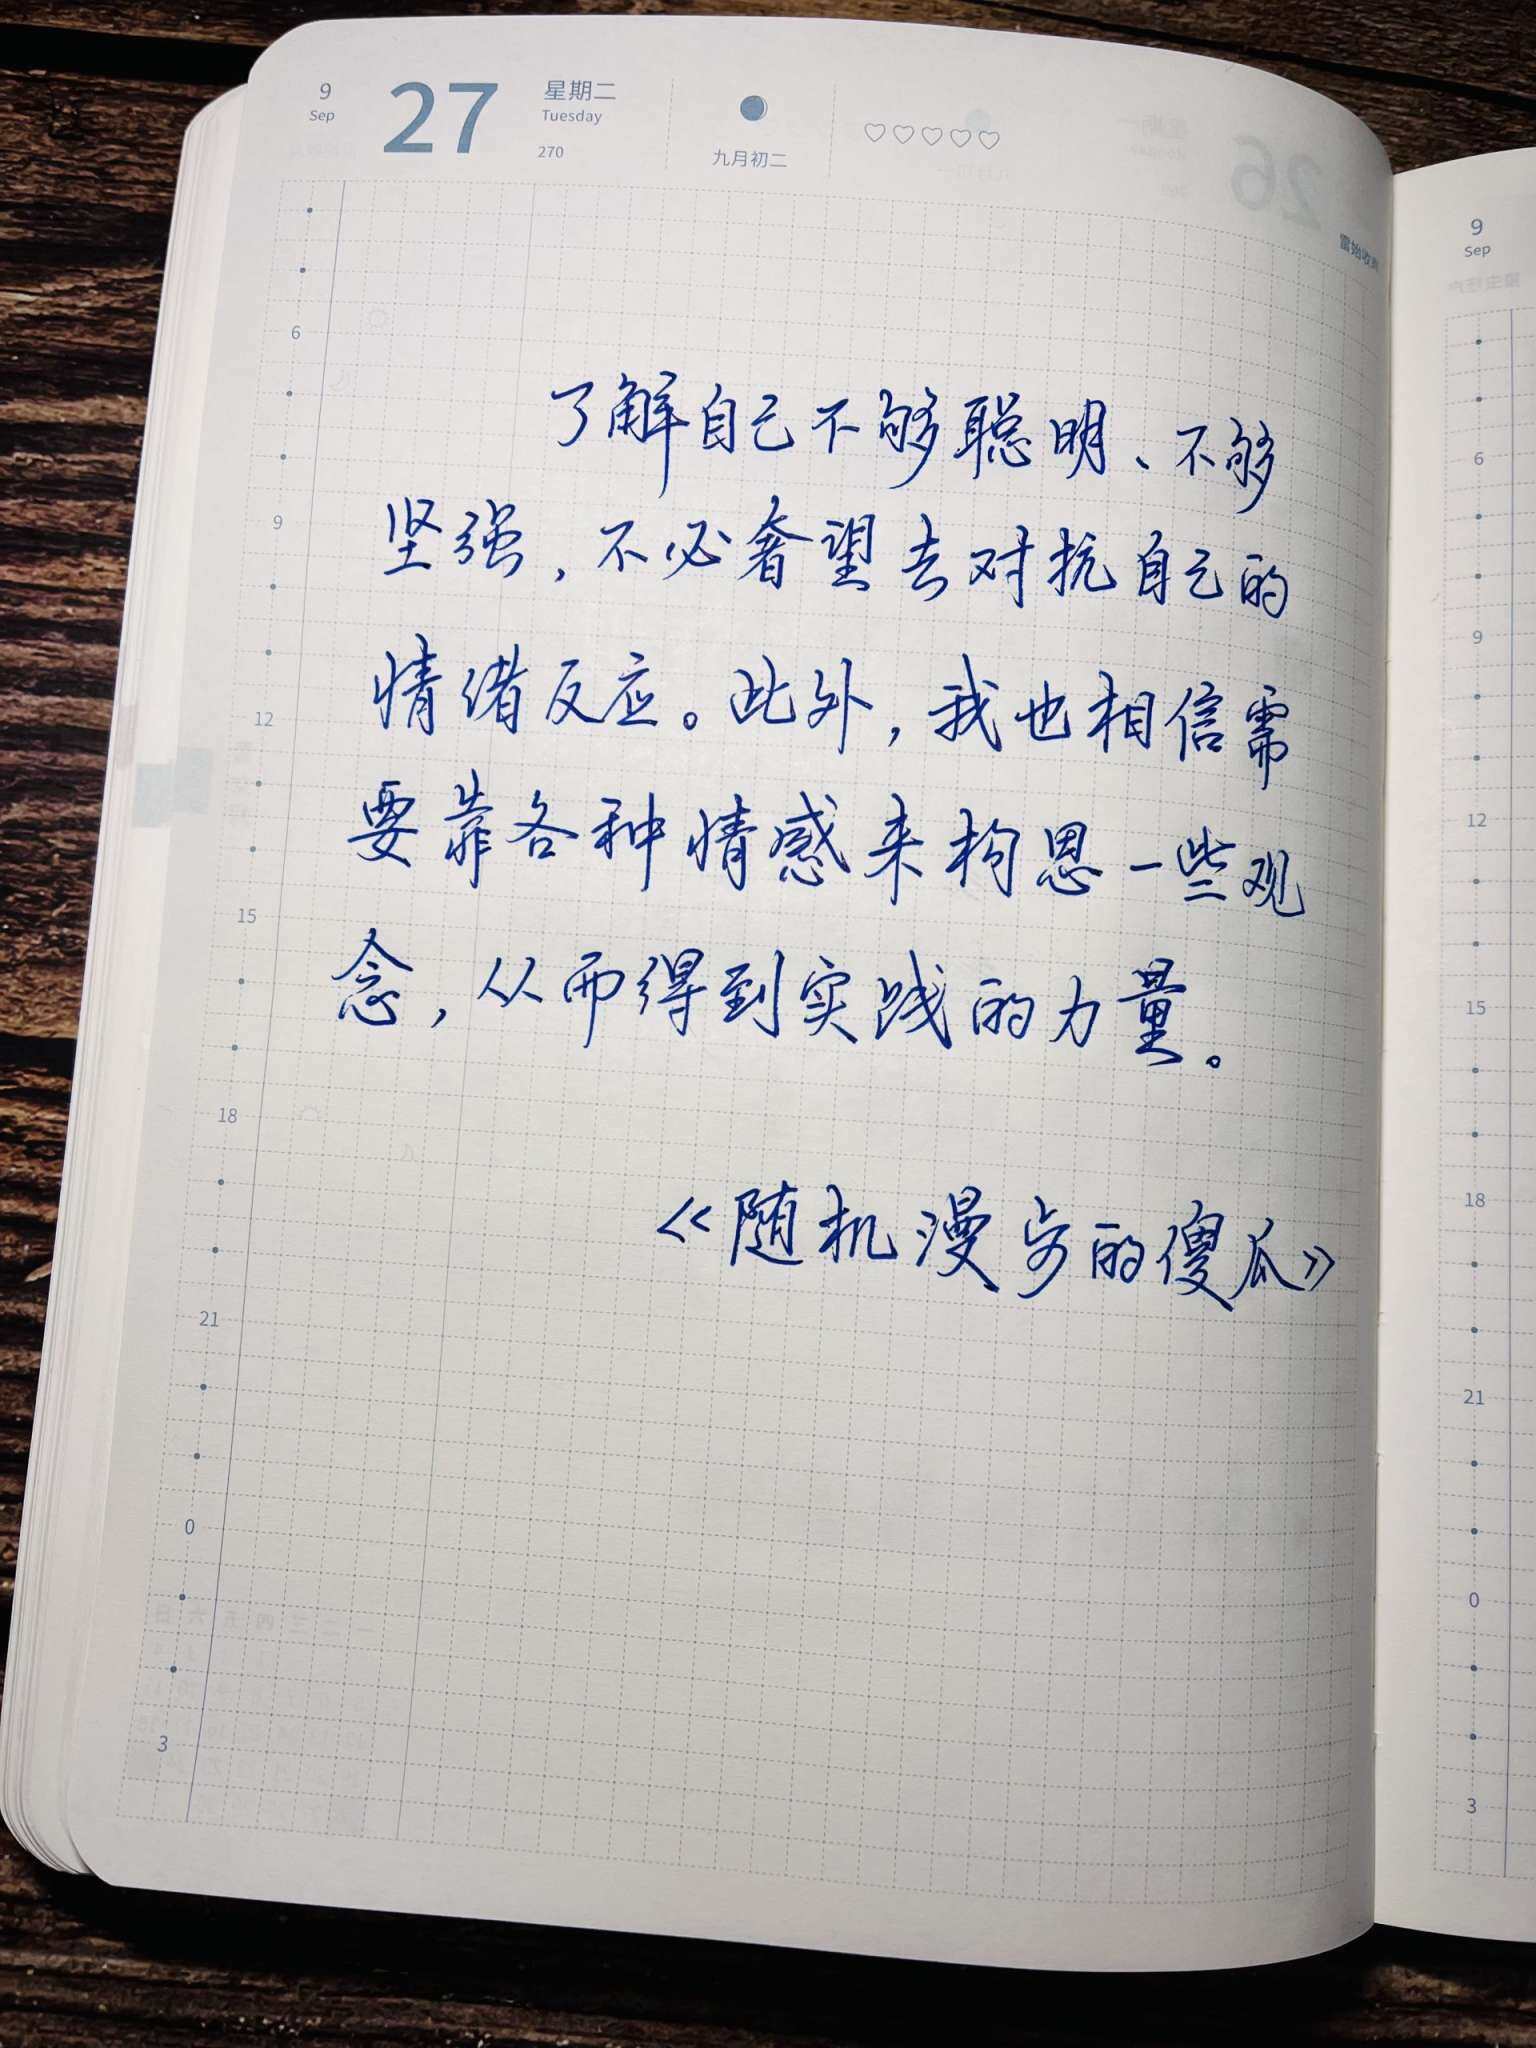 9
Sep
27
星期二
Tuesday
270
九月初二
了解自己不够聪明、不够
坚强，不必奢望去对抗自己的
情绪反应。此外，我也相信需
要靠各种情感来构思一些观
念，从而得到实践的力量。
《随机漫步的傻瓜》
6
9
12
15
18
21
0
3
9
Sep
6
9
12
15
18
21
0
3